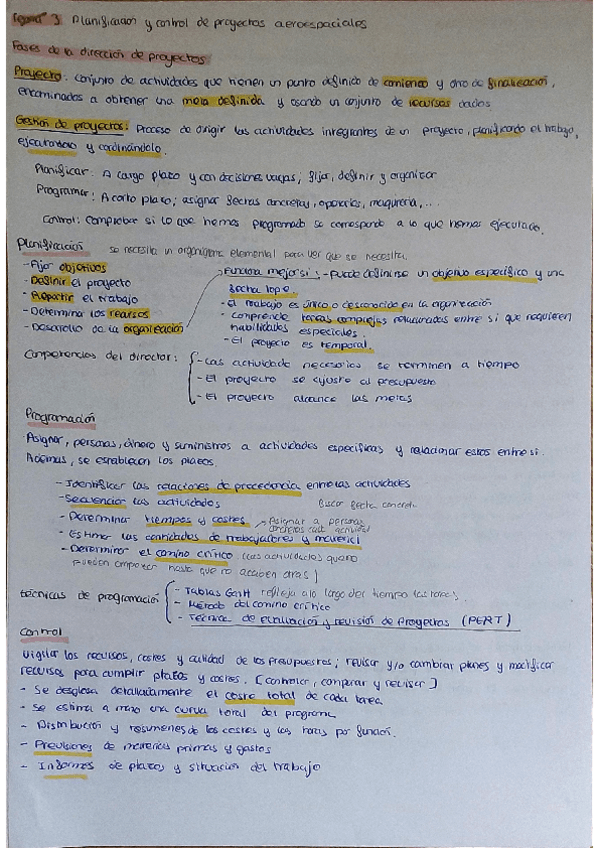 Tema 3 Planificación y control de proyectos aeroespaciales
Fases de la dirección de proyectos
Proyecto: conjunto de actividades que tienen un punto definido de comienzo y otro de finalización,
encaminados a obtener una meta definida y usando un conjunto de recursos dados
Gestión de proyectos: Proceso de dirigir las actividades integrantes de un proyecto, planificando el trabajo,
ejecutandolo y cordinándolo.
Planificar: A largo plazo y con decisiones vagas; fijar, definir y organizar
Programar: A corto plazo; asignar fechas concretas, operarios, maquinaria,...
Control: Comprobar si lo que hemos programado se corresponde a lo que hemos ejecutado.
Planificación se necesita un organigrama elemental para ver que se necesita.
- Fijar objetivos
- Definir el proyecto
- Repartir el trabajo
- Determina los recursos
- Desarrollo de la organización
Funciona mejor si: - Puede definirse un objetivo específico y una
fecha tope.
- El trabajo es único o desconocido en la organización
- Comprende tareas complejas relacionadas entre si que requieren
habilidades especiales.
- El proyecto es temporal.
Competencias del director:
- Las actividades necesarias se terminen a tiempo
- El proyecto se ajuste al presupuesto
- El proyecto alcance las metas
Programación
Asignar, personas, dinero y suministros a actividades especificas y relacionar estos entre si.
Además, se establecen los plazos.
- Identificar las relaciones de procedencia entre las actividades
- Secuenciar las actividades
Buscar fecha concreta
- Determinar tiempos y costes → Asignar a personas
concretas cada actividad
- Estimar las cantidades de trabajadores y material
- Determinar el camino crítico (las actividades que no
pueden empezar hasta que no acaben otras)
técnicas de programación
- Tablas Gantt refleja a lo largo del tiempo las tareas.
- Método del camino crítico
- Técnica de evaluación y revisión de Proyectos (PERT)
Control
Vigilar los recursos, costes y calidad de los presupuestos; revisar y/o cambiar planes y modificar
recursos para cumplir plazos y costes. [Controlar, comparar y revisar]
- Se desglosa detalladamente el coste total de cada tarea
- Se estima a mano una curva total del programa
- Distribución y resumenes de los costes y las horas por función.
- Previsiones de materias primas y gastos
- Informes de plazos y situacion del trabajo